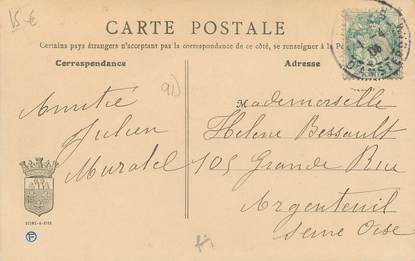 15 €
CARTE POSTALE
Certains pays étrangers n'acceptant pas la correspondance de ce côté, se renseigner à la
Correspondance
Adresse
91)
Amitié
Julien
Muratel
Mademoiselle
Helene Bessault
105 Grande Rue
Argenteuil
Seine Oise
SEINE-&-OISE